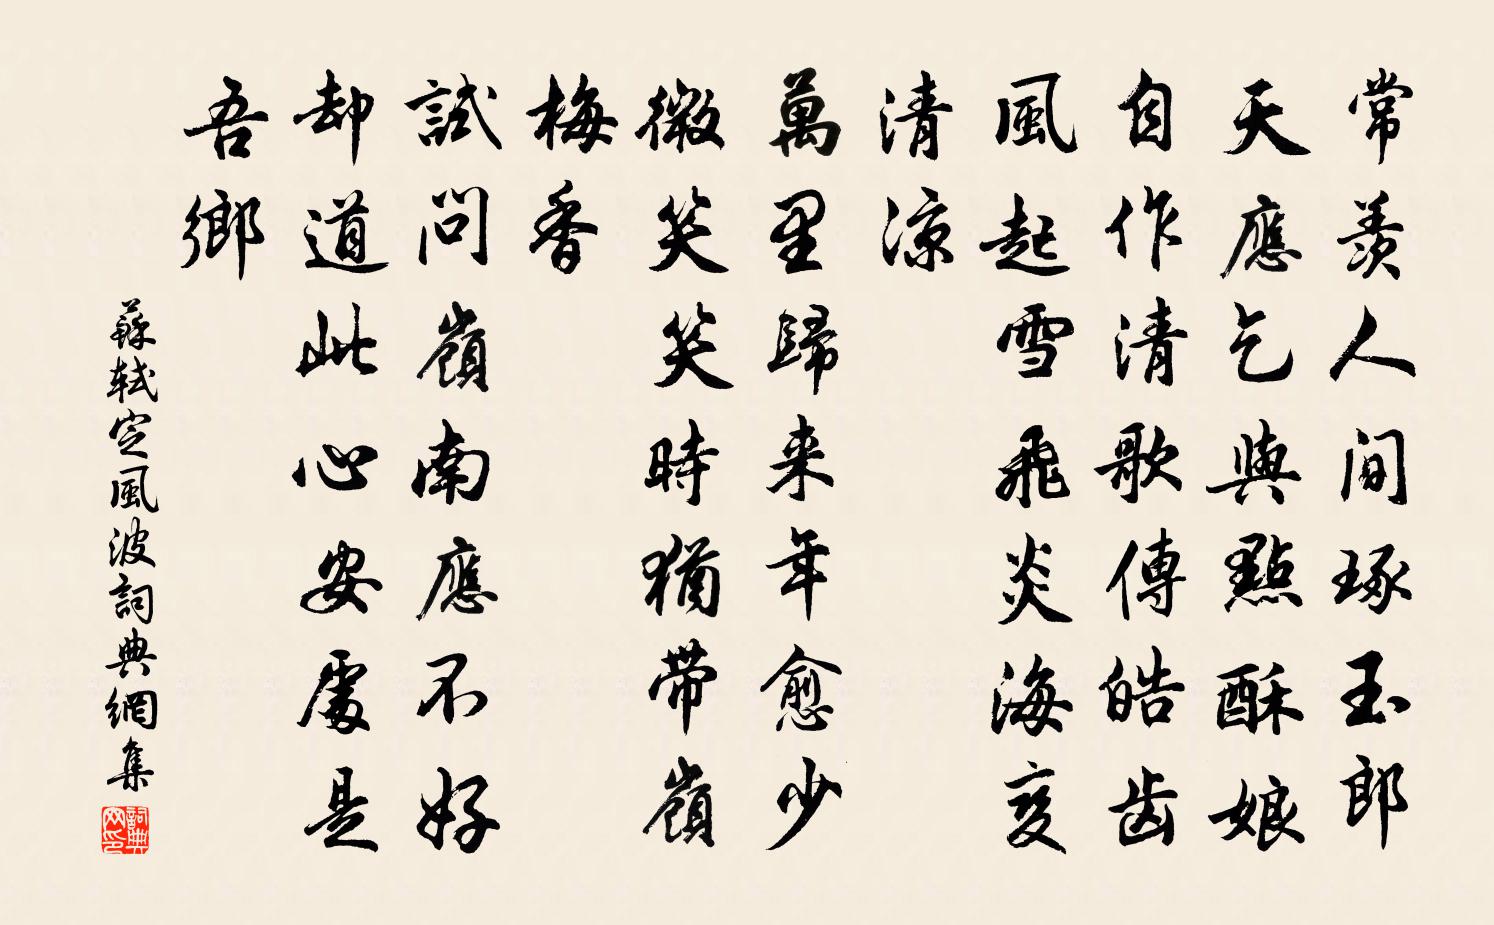 常羨人間琢玉郎
天應乞與點酥娘
自作清歌傳皓齒
風起雪飛炎海變
清涼
萬里歸来年愈少
微笑笑時猶帶嶺
梅香
試問嶺南應不好
却道此心安處是
吾鄉
蘇軾定風波詞典網集
詞典
网印